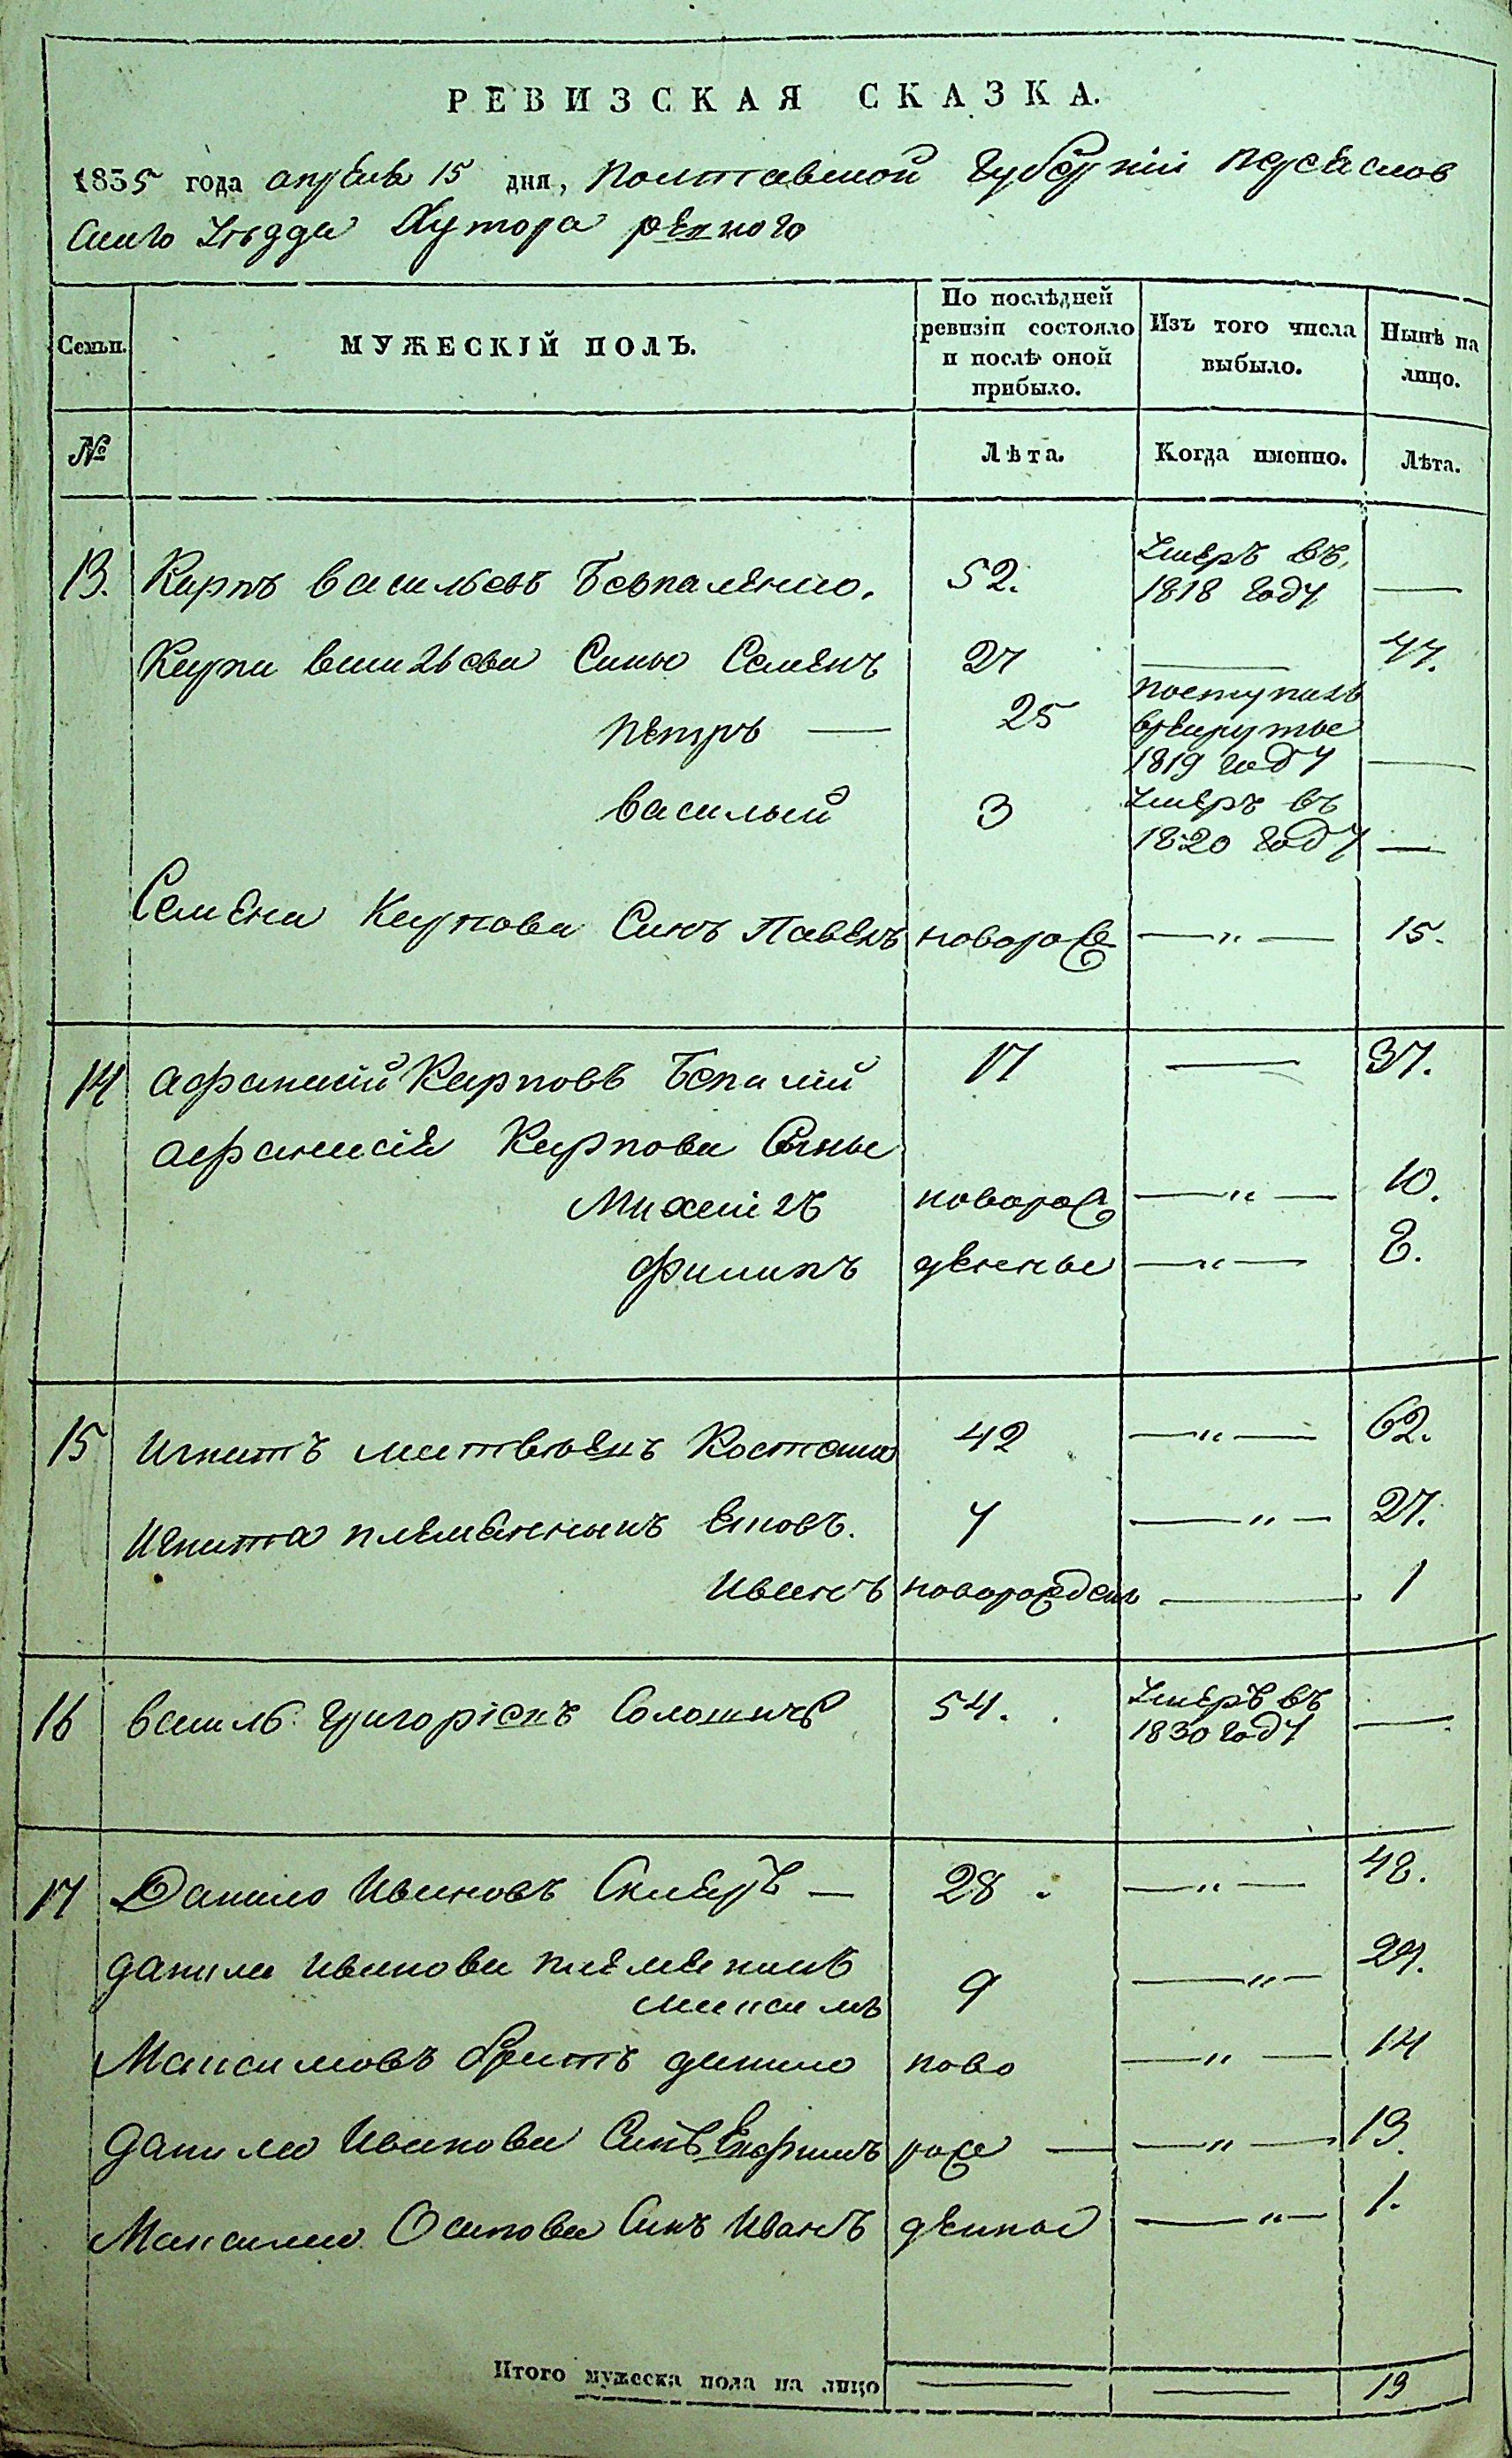 РЕВИЗСКАЯ СКАЗКА.
1835 года апреля 15 дня, Полтавской Губерніи Переяслов
скаго Уезда Хутора
Семьи.
МУЖЕСКІЙ ПОЛЪ.
По послѣдней ревизіи состояло и послѣ оной прибыло.
Изъ того числа выбыло.
Нынѣ на лицо.
№
Лѣта.
Когда именно.
Лѣта.
13. Карпъ Васильевъ 52. Умеръ въ 1818 году —
Карпа Васильева Сины Семенъ 27 — 47.
Петръ — 25 поступилъ врекруты 1819 году —
Василый 3 Умеръ въ 1820 году —
Семена Карпова Синъ Павелъ новорож —„— 15.
14 Афанасій Карповъ Беспалій 17 — 37.
Афанасія Карпова Сыны
Михаілъ новорож —„— 10.
Филипъ денные —„— 8.
15 Игнатъ Матвеевъ 42 —„— 62.
Игната племянникъ 7 —„— 27.
Иванъ новорожден — 1
16 Василь Григоріевъ 54. Умеръ въ 1830 году —
17 Данило Ивановъ Скляръ — 28 —„— 48.
Данила Иванова племеникъ
Максимъ 9 —„— 29.
Максимовъ братъ Данило ново —„— 14
Данила Иванова Синъ Ефримъ рож — —„— 13.
Максима Осипова Синъ Иванъ денные —„— 1.
Итого мужеска пола на лицо — — 13